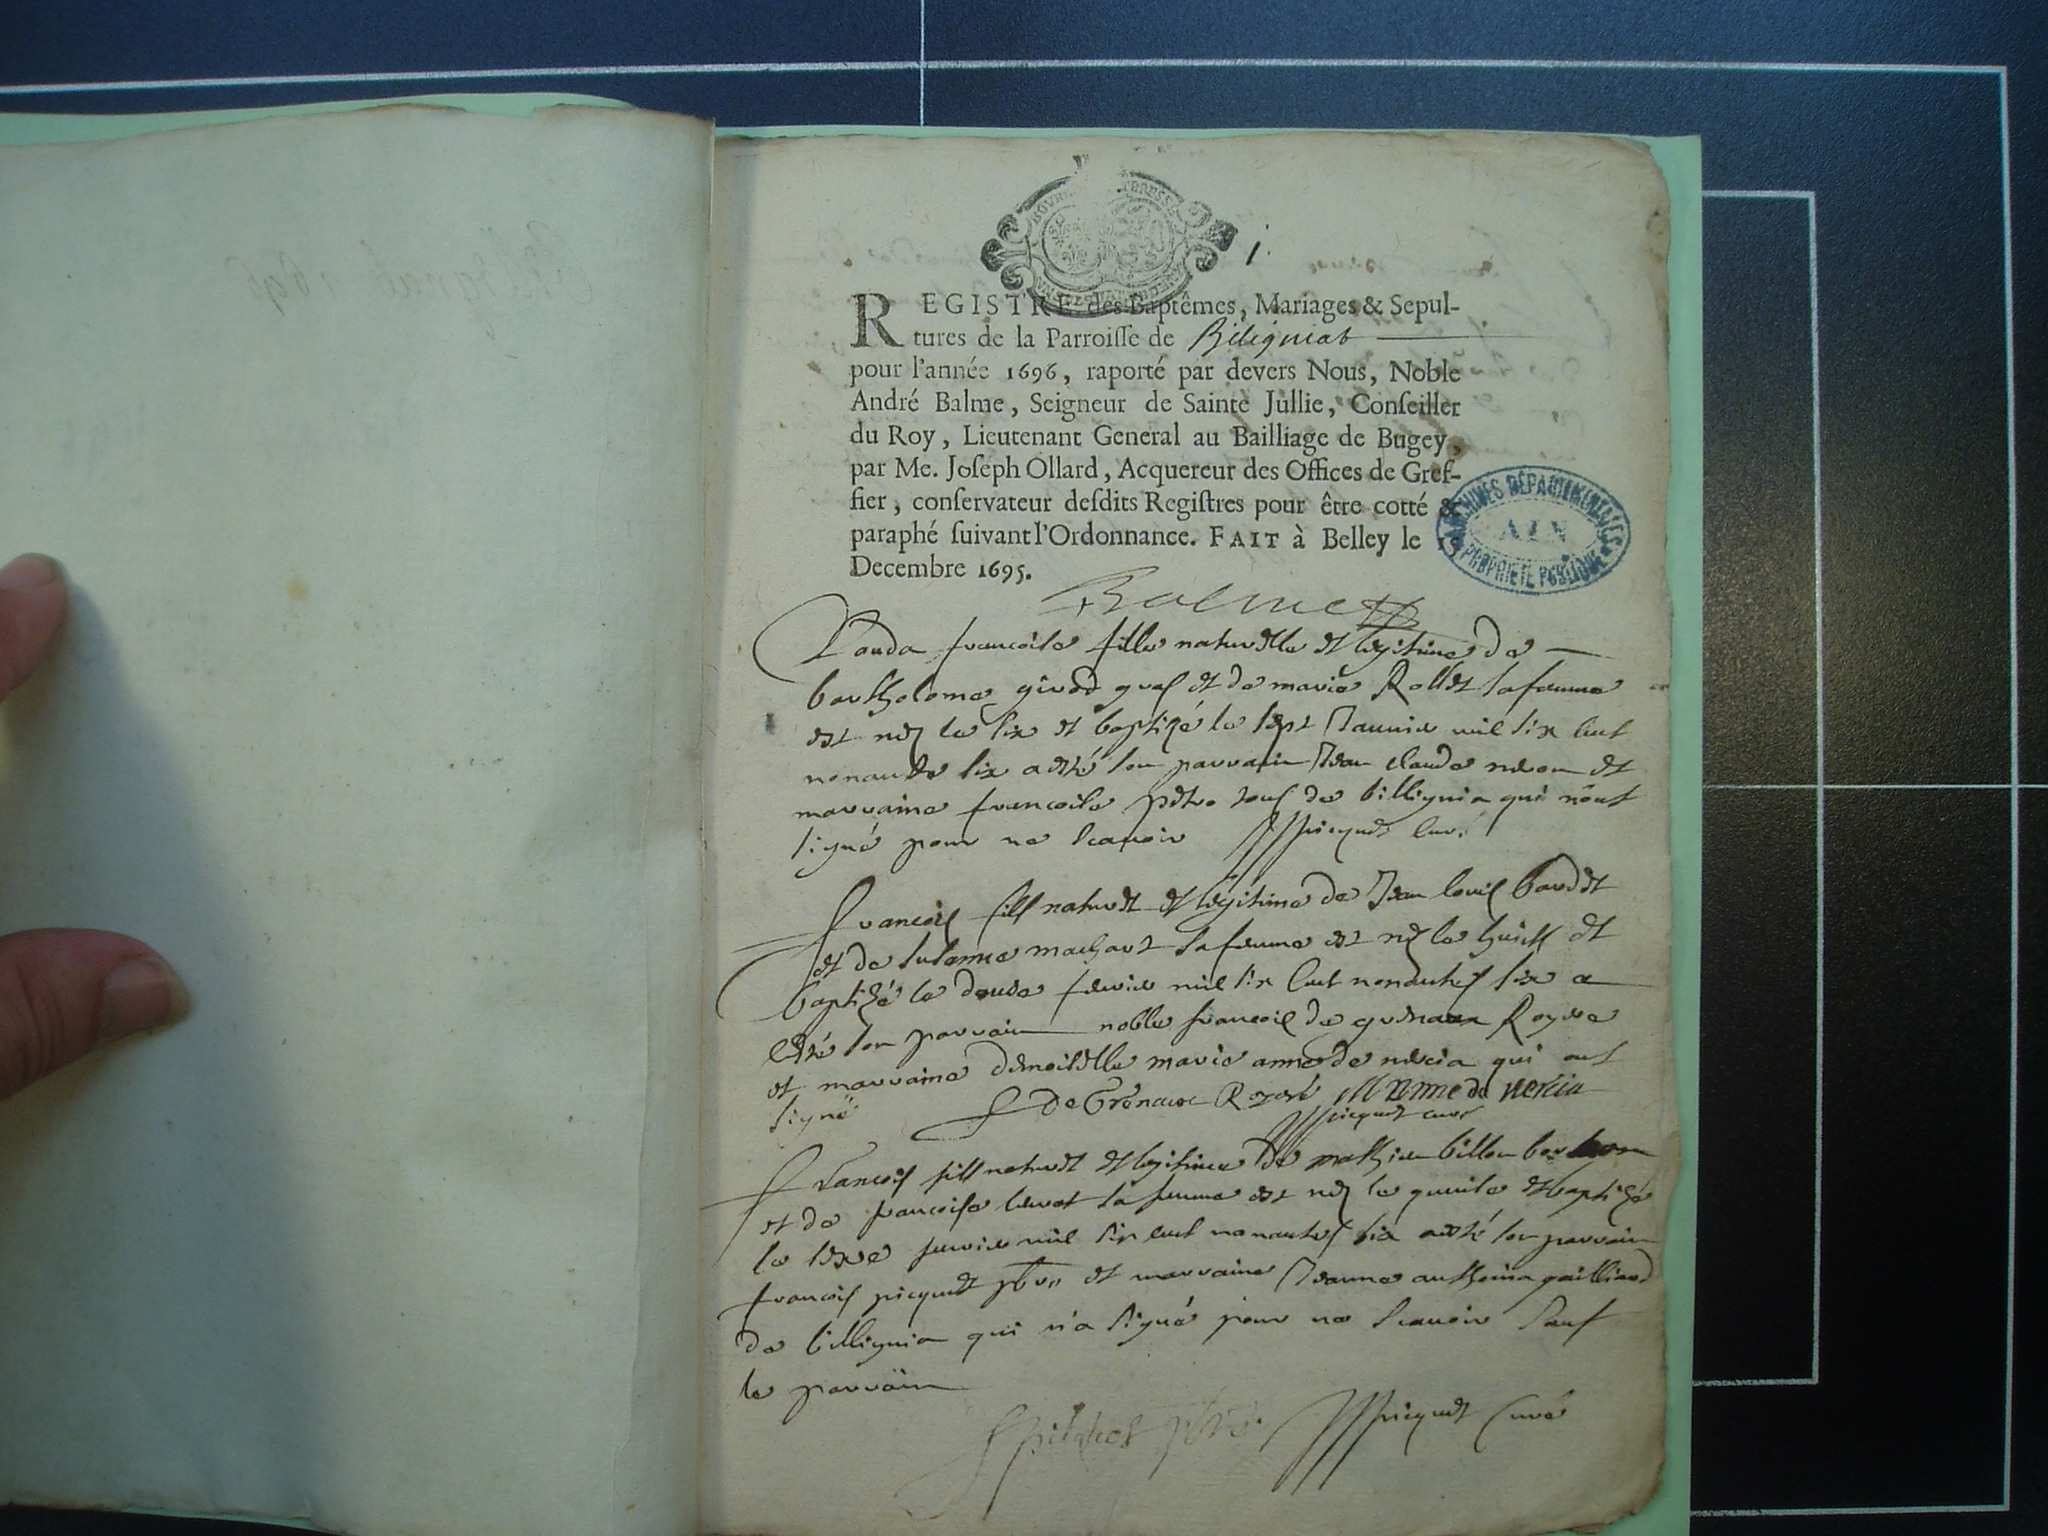 BOURG BRESSE
1.
REGISTRE des Baptêmes, Mariages & Sepul-
tures de la Parroisse de Biligniat
pour l'année 1696, raporté par devers Nous, Noble
André Balme, Seigneur de Sainte Jullie, Conseiller
du Roy, Lieutenant General au Bailliage de Bugey,
par Me. Joseph Ollard, Acquereur des Offices de Gref-
fier, conservateur desdits Registres pour être cotté &
paraphé suivant l'Ordonnance. FAIT à Belley le 15
Decembre 1695.
ARCHIVES DÉPARTEMENTALES
AIN
PROPRIÉTÉ PUBLIQUE
Balme
francoise fille naturelle et legitime de
bartholome girod et de marie Rollet sa femme
est nez le six et baptizé le sept Janvier mil six cent
nonante six a esté son parrain Jean claude et
marraine francoise de billignia qui nont
signé pour ne scavoir Picquet curé
francois fils naturel et legitime de Jean louis bardet
et de susanne machart sa femme est nez le huict et
baptizé le douze fevrier mil six cent nonantes six a
esté son parrain noble francois de grenaux Rogere
et marraine demoiselle marie anne de nercia qui ont
signé F De Grenaux Rogere M anne de nercia
Picquet curé
francois fils naturel et legitime de mathieu billon
et de francoise sa femme est nez le quinse et baptizé
le seze fevrier mil six cent nonantes six a esté son parrain
francois picquet pbre et marraine Jeanne anthoina gailliard
de billignia qui n'a signé pour ne scavoir sauf
le parrain
F picquet pbre Picquet Curé